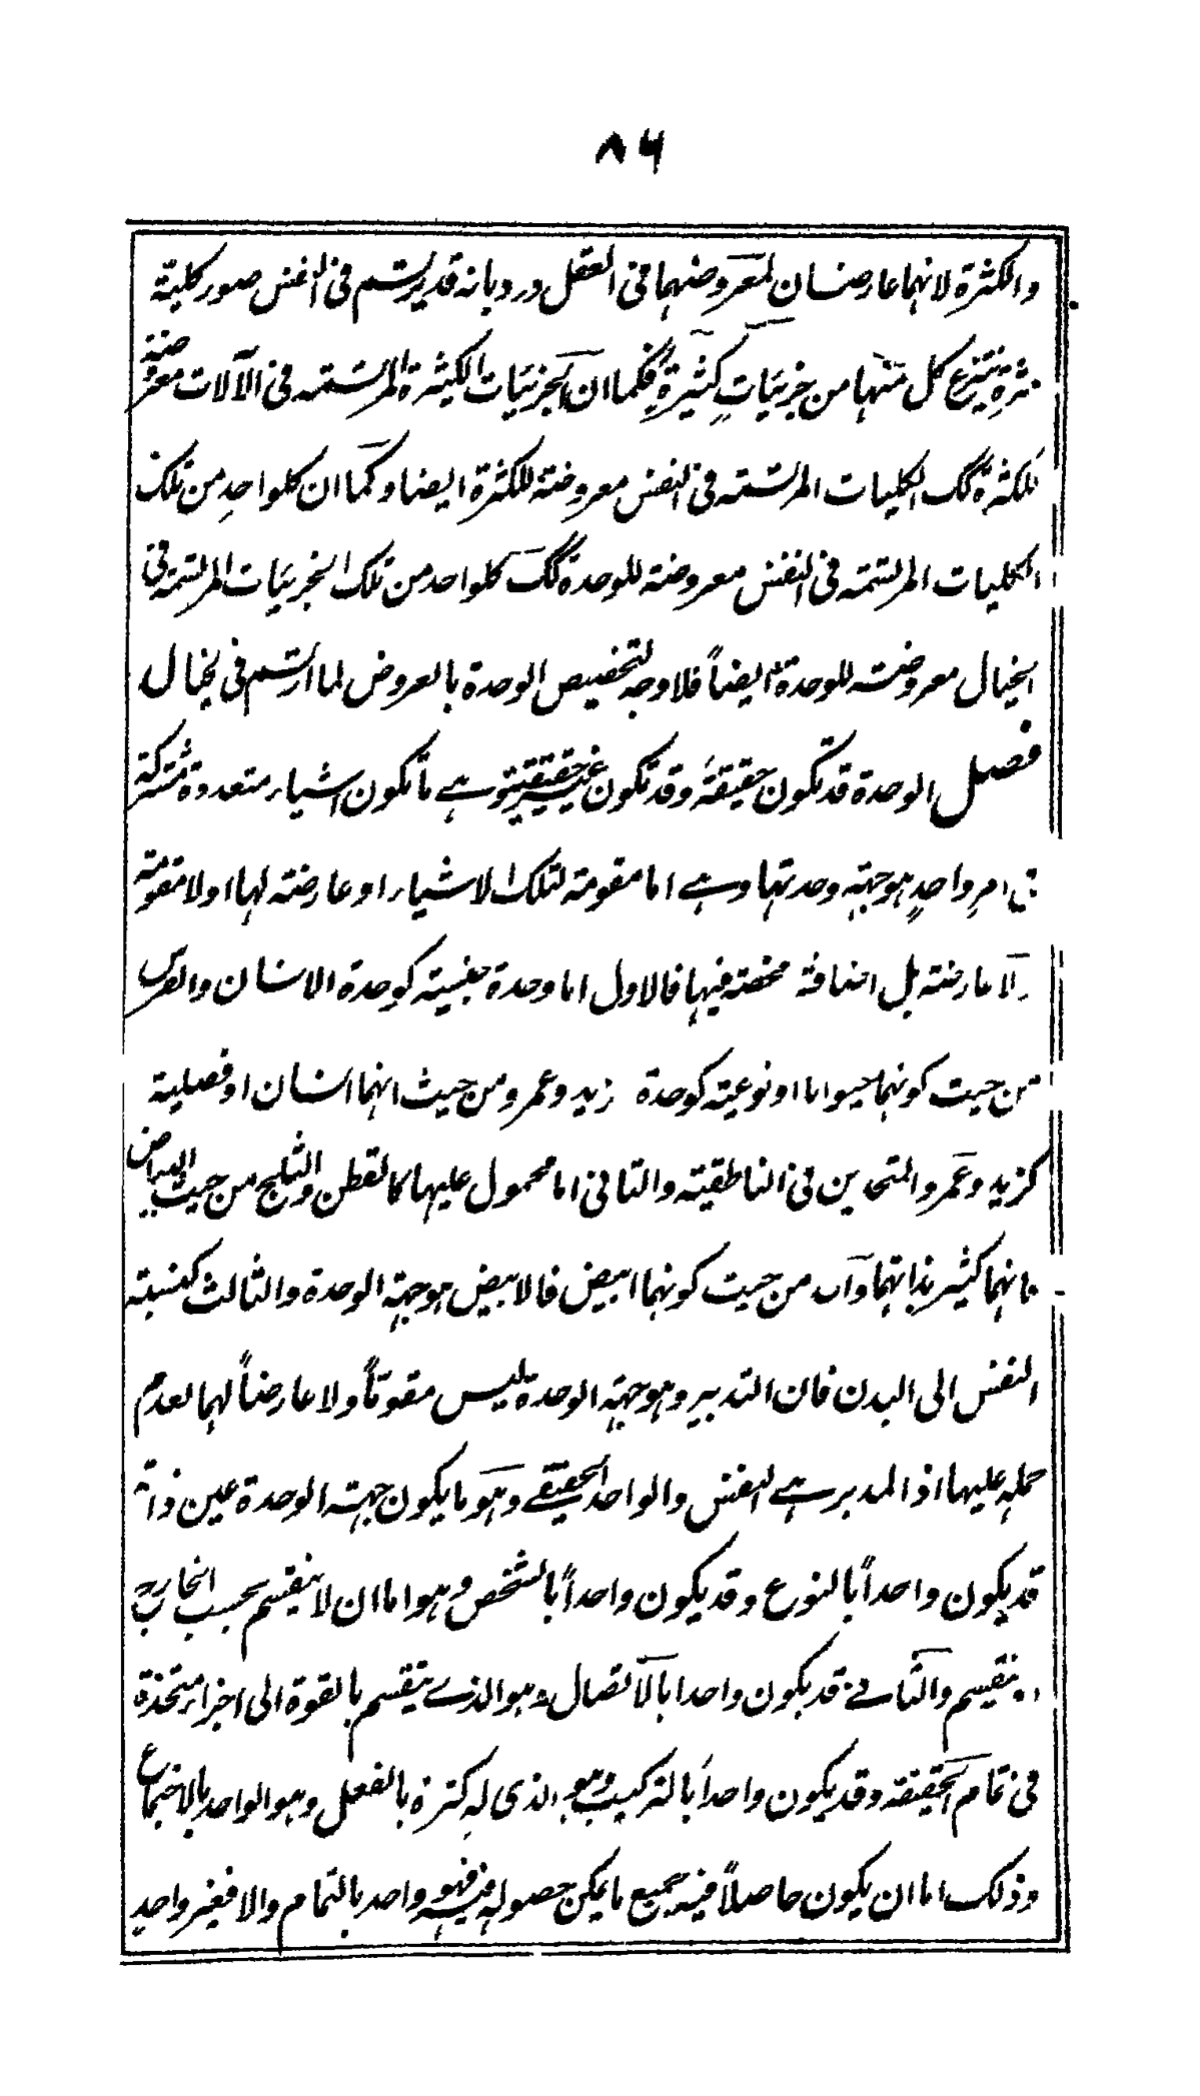 ٨٦
والكثرة لانهما عارضان لمعروضنهما فى العقل ورد بانه قد يرتسم فى النفس صور كلية
ينتزع كل منها من جزئيات كثيرة فكما ان الجزئيات الكثيرة المرتسمه فى الآلات معروضة
للكثرة كك الكليات المرتسمه فى النفس معروضة للكثرة ايضا وكما ان كلواحد من تلك
الكليات المرتسمته فى النفس معروضة للوحدة كك كلواحد من تلك الجزئيات المرتسمة فى
الخيال معروضته للوحدة ايضاً فلا وجه لتخصيص الوحدة بالعروض لما ارتسم فى الخيال
فصل الوحدة قد تكون حقيقة وقد تكون غير حقيقية وهے ما تكون اشياء متعددة مشتركة
فى امر واحدٍ هو جهته وحدتها وهے اما مقومة لتلك الاشياء او عارضته لها اولا مقومة
ولا عارضته بل اضافة محضته فيها فالاول اما وحدة جنسية كوحدة الانسان والفرس
من حيث كونهما حيوانا او نوعية كوحدة زيد وعمرو من حيث انهما انسان او فصلية
كزيد وعمرو المتحدين فى الناطقيته والثانى اما محمول عليها كالقطن والثلج من حيث البياض
فانهما كثير بذاتهما واں من حيث كونهما ابيض فالابيض هو جهة الوحدة والثالث كنسبته
النفس الى البدن فان التدبير وهو جهة الوحدة ليس مقوماً ولا عارضاً لهما لعدم
حمله عليها اذ المدبر هے النفس والواحد الحقيقے وهو ما يكون جهته الوحدة عين ذاته
قد يكون واحداً بالنوع وقد يكون واحداً بالشخص وهو اما ان لا ينقسم بحسب الخارج
او ينقسم والثانے قد يكون واحدا بالاتصال وهو الذے ينقسم بالقوة الى اجزاء متحدة
فى تمام الحقيقة وقد يكون واحداً بالتركيب وهو الذى له كثرة بالفعل وهو الواحد بالاجتماع
وذلك اما ان يكون حاصلاً فيه جميع ما يمكن حصوله فيه فهو واحد بالتمام والا فغير واحد